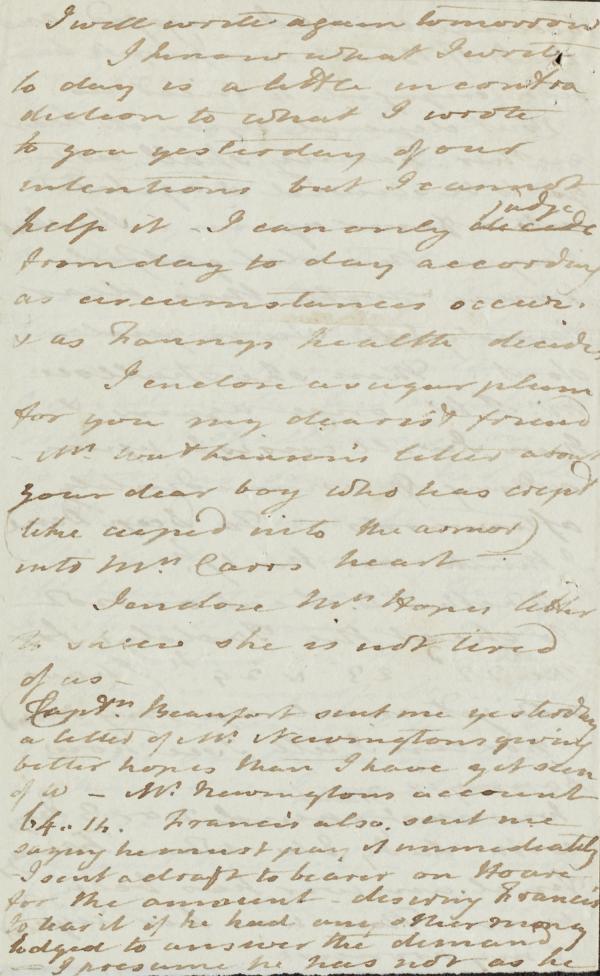 I will write again tomorrow
I know what I write
to day is a little in contra
diction to what I wrote
to you yesterday of our
intentions but I cannot
help it - I can only judge decide
from day to day according
as circumstances occur.
& as Fannys health decides
I enclose a sugar plum
for you my dearest friend
- Mr. Watkinson's letter about
your dear boy who has crept
(like cupid into the armor)
into Mrs Carrs heart -
I enclose Mrs Hopes letter
to shew she is not tired
of us -
Captn. Beaufort sent me yesterday
a letter of Mr. Newingtons giving
better hopes than I have yet seen
of W - Mr. Newingtons account
64.. 14. Francis also sent me
saying he must pay it immediately
I sent a draft to bearer on Hoare
for the amount - desiring Francis
to tear it if he had any other money
lodged to answer the demand
- I presume he has not as he